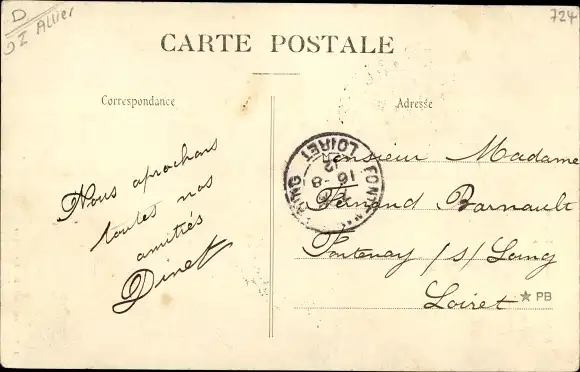 D
03 Allier
724
CARTE POSTALE
Correspondance
Adresse
Nous aprochons
toutes nos
amitiés
Dinet
LOIRET
16-8
12
Monsieur Madame
Fernand Barnault
Fontenay /s/ Loing
Loiret
★ PB